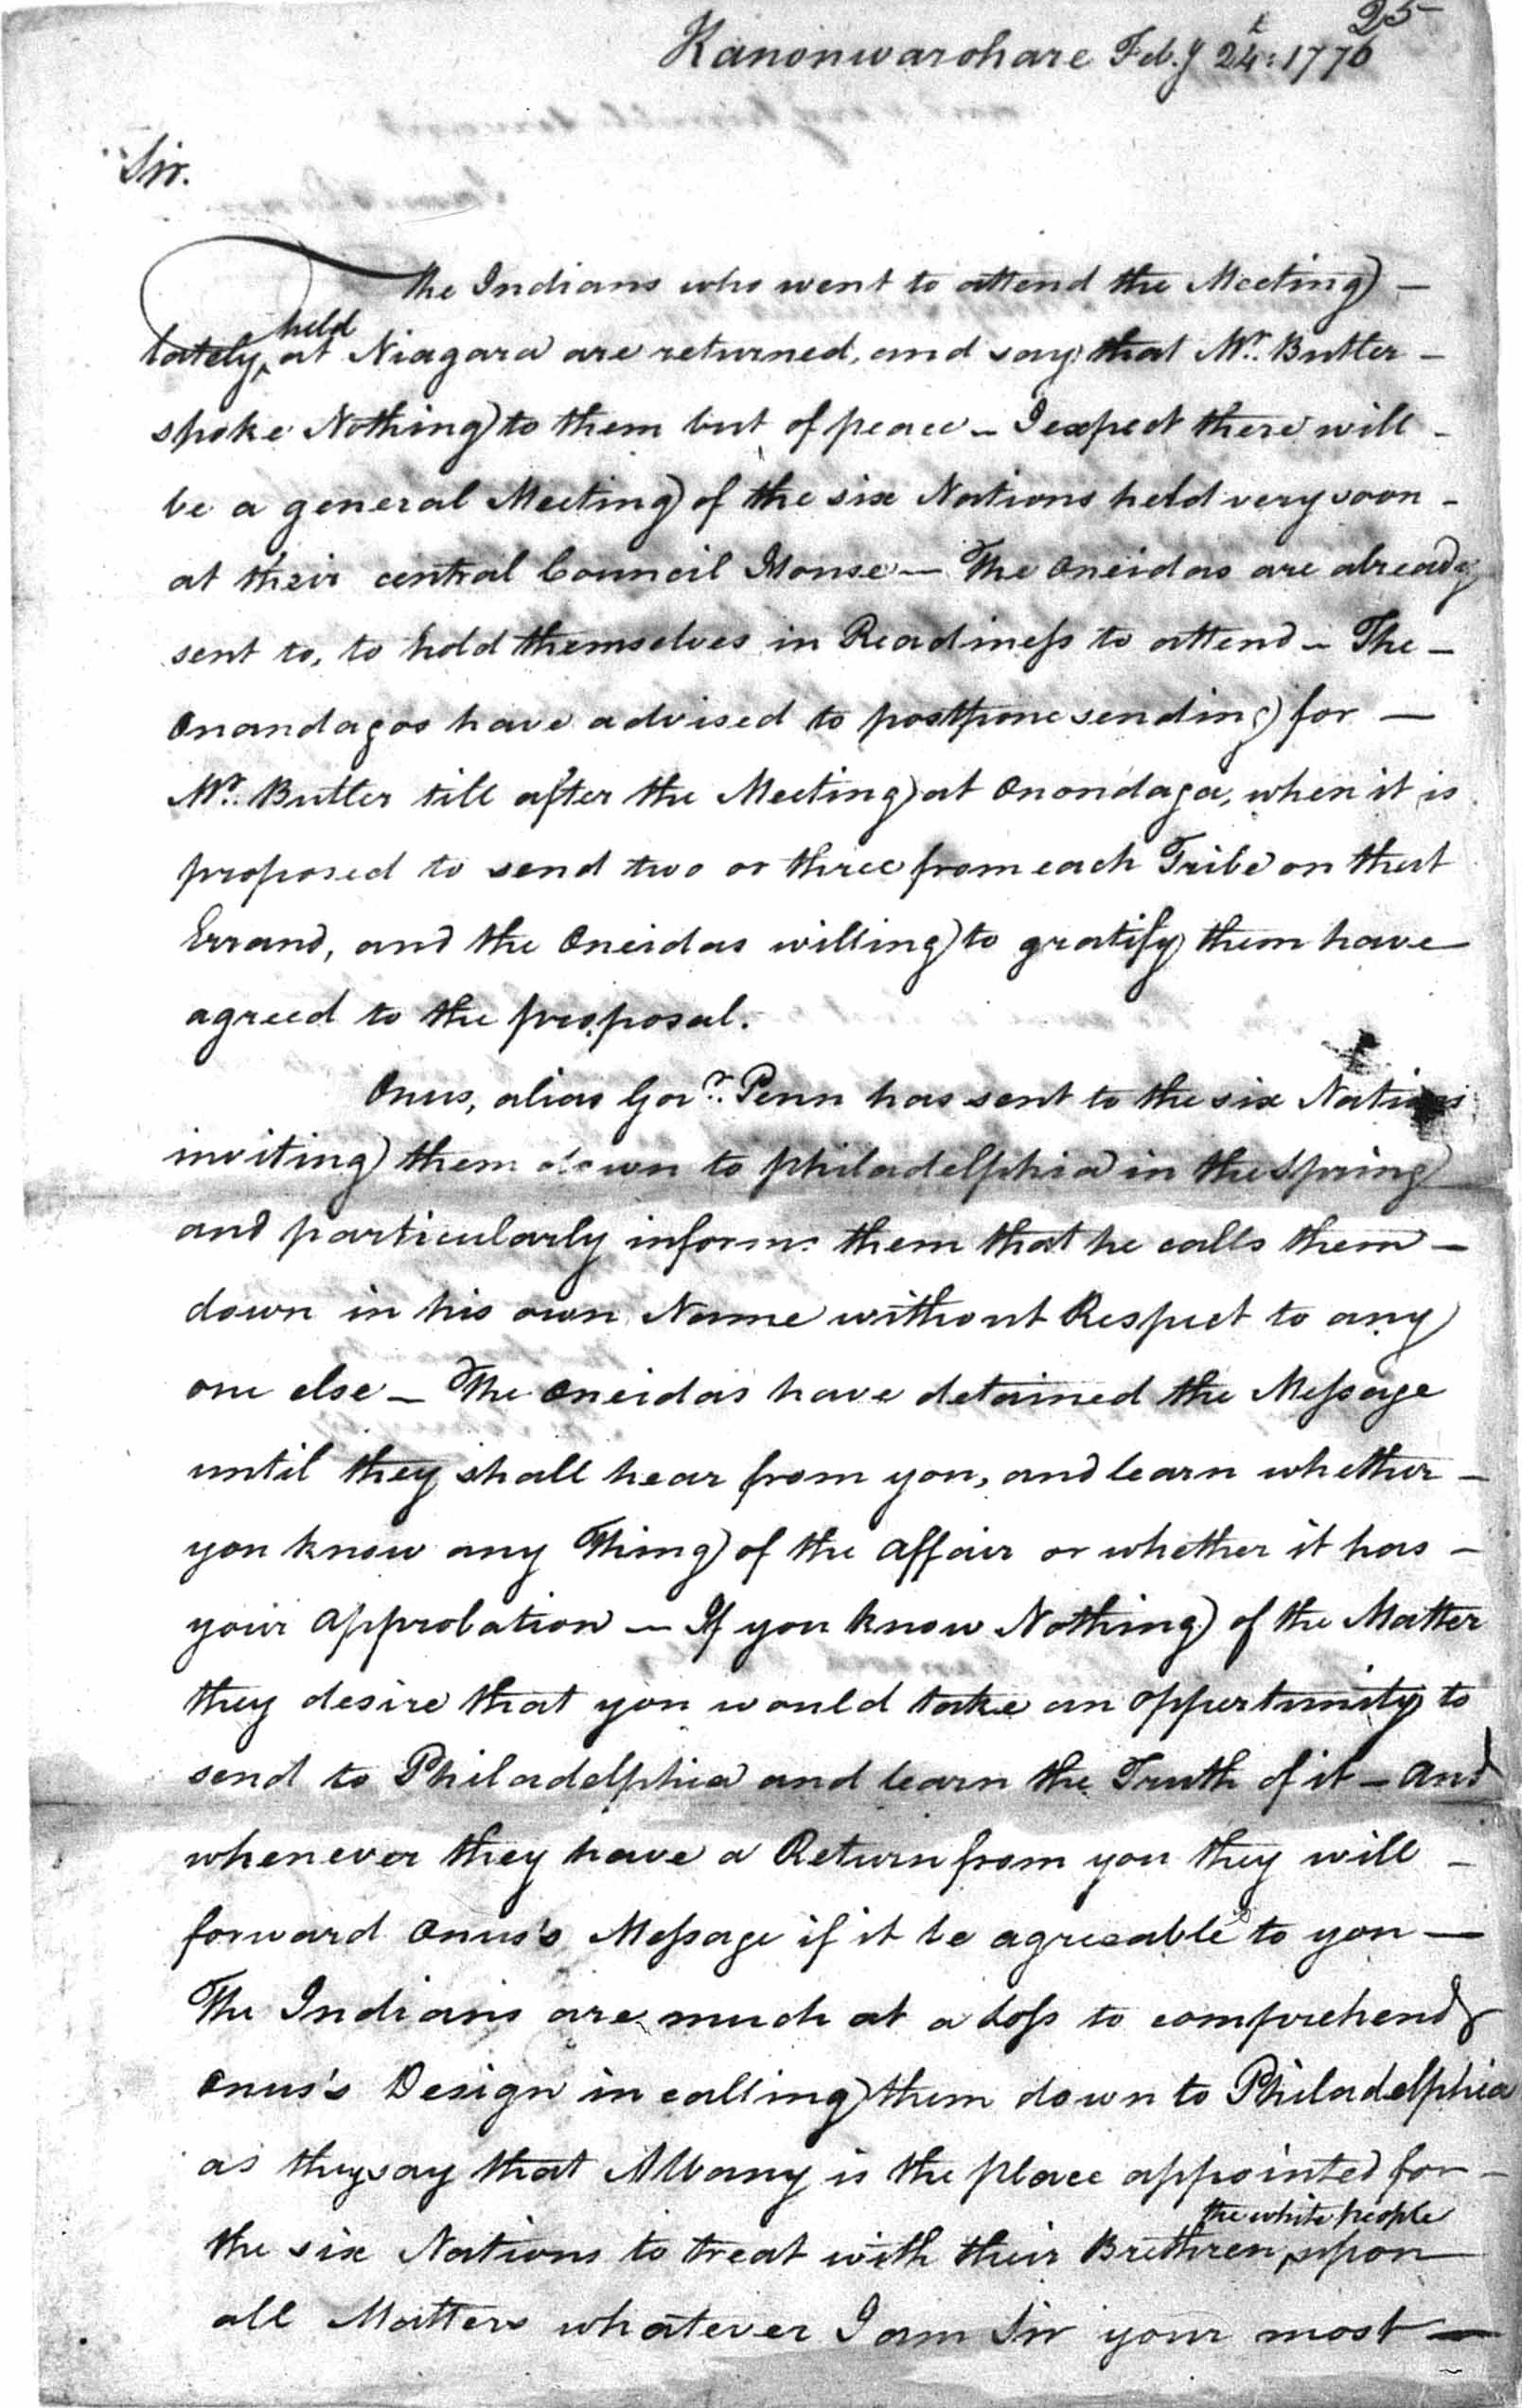 25
Kanonwarohare Feb.y 24t: 1776
Sir.
The Indians who went to attend the Meeting —
lately held at Niagara are returned, and say that Mr. Butler —
spoke Nothing to them but of peace — I expect there will —
be a general Meeting of the six Nations held very soon —
at their central Council House — The Oneidas are already
sent to, to hold themselves in Readiness to attend — The —
Onandagos have advised to postpone sending for —
Mr. Butler till after the Meeting at Onondaga, when it is
proposed to send two or three from each Tribe on that
Errand, and the Oneidas willing to gratify them have
agreed to the proposal.
Onus, alias Govr. Penn has sent to the six Nations
inviting them down to philadelphia in the Spring
and particularly informs them that he calls them —
down in his own Name without Respect to any
one else — The Oneidas have detained the Message
until they shall hear from you, and learn whether —
you know any Thing of the affair or whether it has —
your approbation — If you know Nothing of the Matter
they desire that you would take an oppertunity to
send to Philadelphia and learn the Truth of it — And
whenever they have a Return from you they will —
forward Onus's Message if it be agreeable to you —
The Indians are much at a Loss to comprehend
Onus's Design in calling them down to Philadelphia
as they say that Albany is the place appointed for —
the six Nations to treat with their Brethren the white people upon
all Matters whatever I am Sir your most —